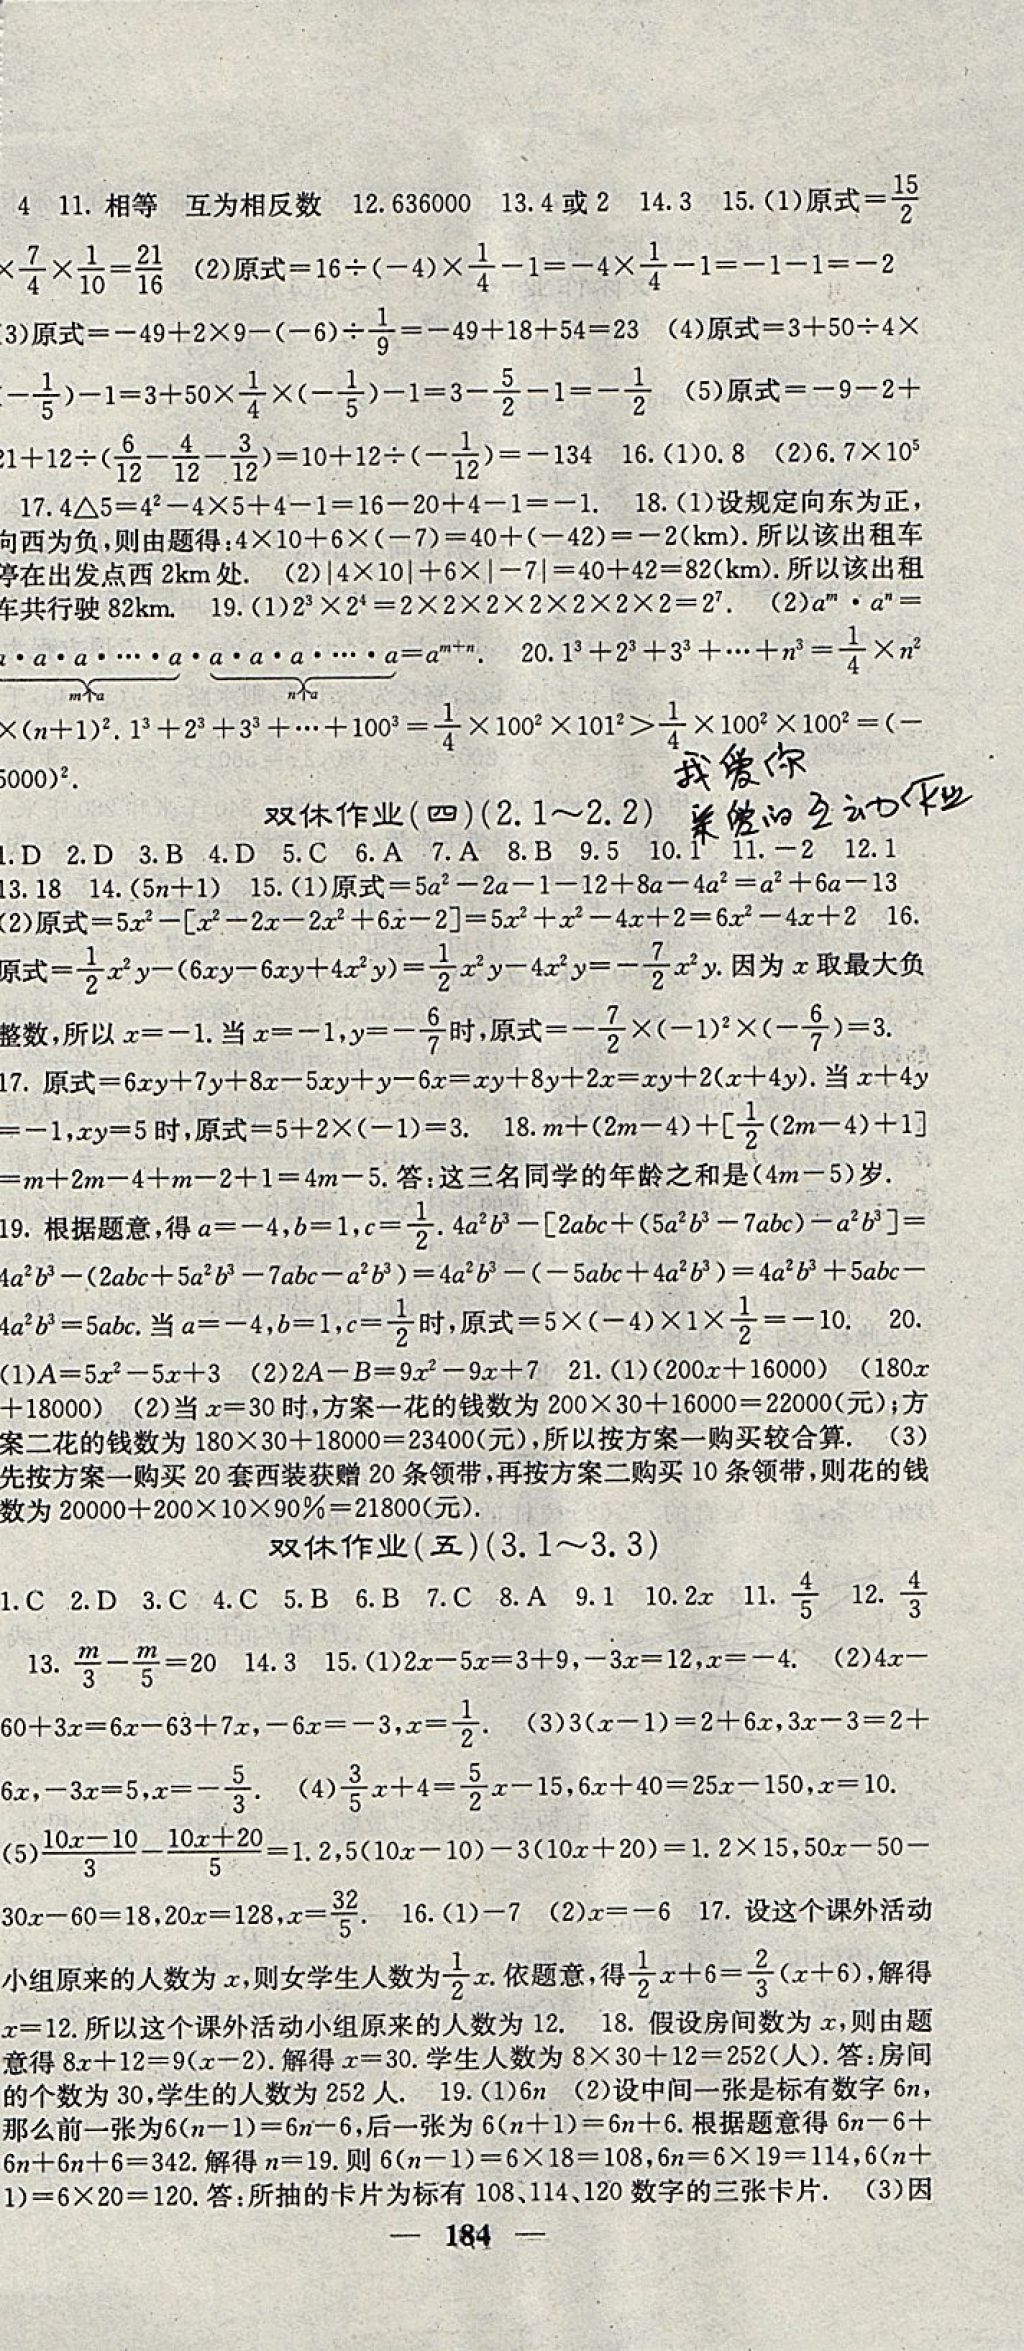 4 11. 相等 互为相反数 12.636000 13.4或2 14.3 15.(1)原式=15/2
×7/4×1/10=21/16 (2)原式=16÷(-4)×1/4-1=-4×1/4-1=-1-1=-2
3)原式=-49+2×9-(-6)÷1/9=-49+18+54=23 (4)原式=3+50÷4×
(-1/5)-1=3+50×1/4×(-1/5)-1=3-5/2-1=-1/2 (5)原式=-9-2+
21+12÷(6/12-4/12-3/12)=10+12÷(-1/12)=-134 16.(1)0.8 (2)6.7×10⁵
17.4△5=4²-4×5+4-1=16-20+4-1=-1. 18.(1)设规定向东为正,
向西为负,则由题得:4×10+6×(-7)=40+(-42)=-2(km).所以该出租车
停在出发点西2km处. (2)|4×10|+6×|-7|=40+42=82(km).所以该出租
车共行驶82km. 19.(1)2³×2⁴=2×2×2×2×2×2×2=2⁷. (2)aᵐ·aⁿ=
a·a·a·…·a·a·a·a·…·a=aᵐ⁺ⁿ. 20.1³+2³+3³+…+n³=1/4×n²
m个a n个a
×(n+1)².1³+2³+3³+…+100³=1/4×100²×101²>1/4×100²×100²=(-
5000)².
我爱你
亲爱的互动作业
双休作业(四)(2.1～2.2)
1.D 2.D 3.B 4.D 5.C 6.A 7.A 8.B 9.5 10.1 11.-2 12.1
13.18 14.(5n+1) 15.(1)原式=5a²-2a-1-12+8a-4a²=a²+6a-13
(2)原式=5x²-[x²-2x-2x²+6x-2]=5x²+x²-4x+2=6x²-4x+2 16.
原式=1/2x²y-(6xy-6xy+4x²y)=1/2x²y-4x²y=-7/2x²y.因为x取最大负
整数,所以x=-1.当x=-1,y=-6/7时,原式=-7/2×(-1)²×(-6/7)=3.
17. 原式=6xy+7y+8x-5xy+y-6x=xy+8y+2x=xy+2(x+4y).当x+4y
=-1,xy=5时,原式=5+2×(-1)=3. 18.m+(2m-4)+[1/2(2m-4)+1]
=m+2m-4+m-2+1=4m-5.答:这三名同学的年龄之和是(4m-5)岁.
19. 根据题意,得a=-4,b=1,c=1/2.4a²b³-[2abc+(5a²b³-7abc)-a²b³]=
4a²b³-(2abc+5a²b³-7abc-a²b³)=4a²b³-(-5abc+4a²b³)=4a²b³+5abc-
4a²b³=5abc.当a=-4,b=1,c=1/2时,原式=5×(-4)×1×1/2=-10. 20.
(1)A=5x²-5x+3 (2)2A-B=9x²-9x+7 21.(1)(200x+16000) (180x
+18000) (2)当x=30时,方案一花的钱数为200×30+16000=22000(元);方
案二花的钱数为180×30+18000=23400(元),所以按方案一购买较合算. (3)
先按方案一购买20套西装获赠20条领带,再按方案二购买10条领带,则花的钱
数为20000+200×10×90%=21800(元).
双休作业(五)(3.1～3.3)
1.C 2.D 3.C 4.C 5.B 6.B 7.C 8.A 9.1 10.2x 11. 4/5 12. 4/3
13. m/3-m/5=20 14.3 15.(1)2x-5x=3+9,-3x=12,x=-4. (2)4x-
60+3x=6x-63+7x,-6x=-3,x=1/2. (3)3(x-1)=2+6x,3x-3=2+
6x,-3x=5,x=-5/3. (4)3/5x+4=5/2x-15,6x+40=25x-150,x=10.
(5)(10x-10)/3-(10x+20)/5=1.2,5(10x-10)-3(10x+20)=1.2×15,50x-50-
30x-60=18,20x=128,x=32/5. 16.(1)-7 (2)x=-6 17. 设这个课外活动
小组原来的人数为x,则女学生人数为1/2x.依题意,得1/2x+6=2/3(x+6),解得
x=12.所以这个课外活动小组原来的人数为12. 18. 假设房间数为x,则由题
意得8x+12=9(x-2).解得x=30.学生人数为8×30+12=252(人).答:房间
的个数为30,学生的人数为252人. 19.(1)6n (2)设中间一张是标有数字6n,
那么前一张为6(n-1)=6n-6,后一张为6(n+1)=6n+6.根据题意得6n-6+
6n+6n+6=342.解得n=19.则6(n-1)=6×18=108,6n=6×19=114,6(n+
1)=6×20=120.答:所抽的卡片为标有108、114、120数字的三张卡片. (3)因
— 184 —